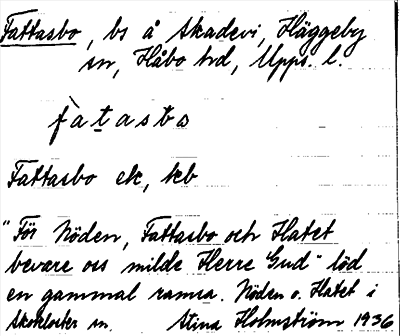 Fattasbo, bs å Skadevi, Häggeby
sn, Håbo hd, Upps. l.
fàtasbo
Fattasbo ek, kb
"För Nöden, Fattasbo och Hatet
bevare oss milde Herre Gud" löd
en gammal ramsa. Nöden o. Hatet i
Skokloster sn. Stina Holmström 1936